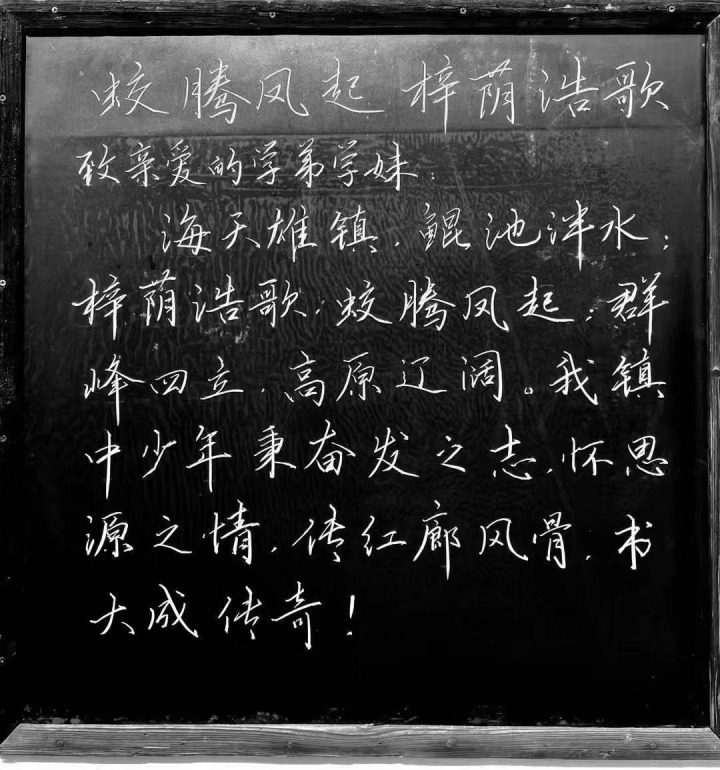 蛟腾凤起 梓荫浩歌
致亲爱的学弟学妹：
海天雄镇，鲲池泮水；
梓荫浩歌，蛟腾凤起；群
峰四立，高原辽阔。我镇
中少年秉奋发之志，怀思
源之情，传红廊风骨，书
大成传奇！